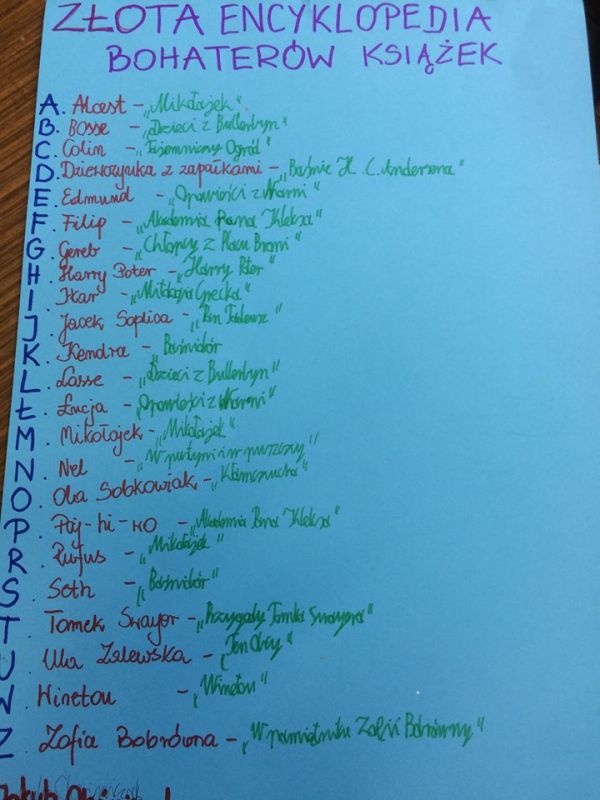 ZŁOTA ENCYKLOPEDIA
BOHATERÓW KSIĄŻEK
A. Alcest - „Mikołajek"
B. Bosse - „Dzieci z Bullerbyn"
C. Colin - „Tajemniczy Ogród"
D. Dziewczynka z zapałkami - „Baśnie H. C. Andersena"
E. Edmund - „Opowieści z Narni"
F. Filip - „Akademia Pana Kleksa"
G. Gereb - „Chłopcy z Placu Broni"
H. Harry Poter - „Harry Poter"
I. Ikar - „Mitologia Grecka"
J. Jacek Soplica - „Pan Tadeusz"
K. Kendra - Baśniobór
L. Lasse - „Dzieci z Bullerbyn"
Ł. Łucja - „Opowieści z Narni"
M. Mikołajek - „Mikołajek"
N. Nel - „W pustyni i w puszczy"
O. Ola Sobkowiak - „Kłamczucha"
P. Paj-hi-wo - „Akademia Pana Kleksa"
R. Rufus - „Mikołajek"
S. Seth - „Baśniobór"
T. Tomek Swayor - „Przygody Tomka Swayera"
U. Ula Zalewska - „Ten Obcy"
W. Winetou - „Winetou"
Z. Zofia Bobrówna - „W pamiętniku Zofii Bobrówny"
Jakub